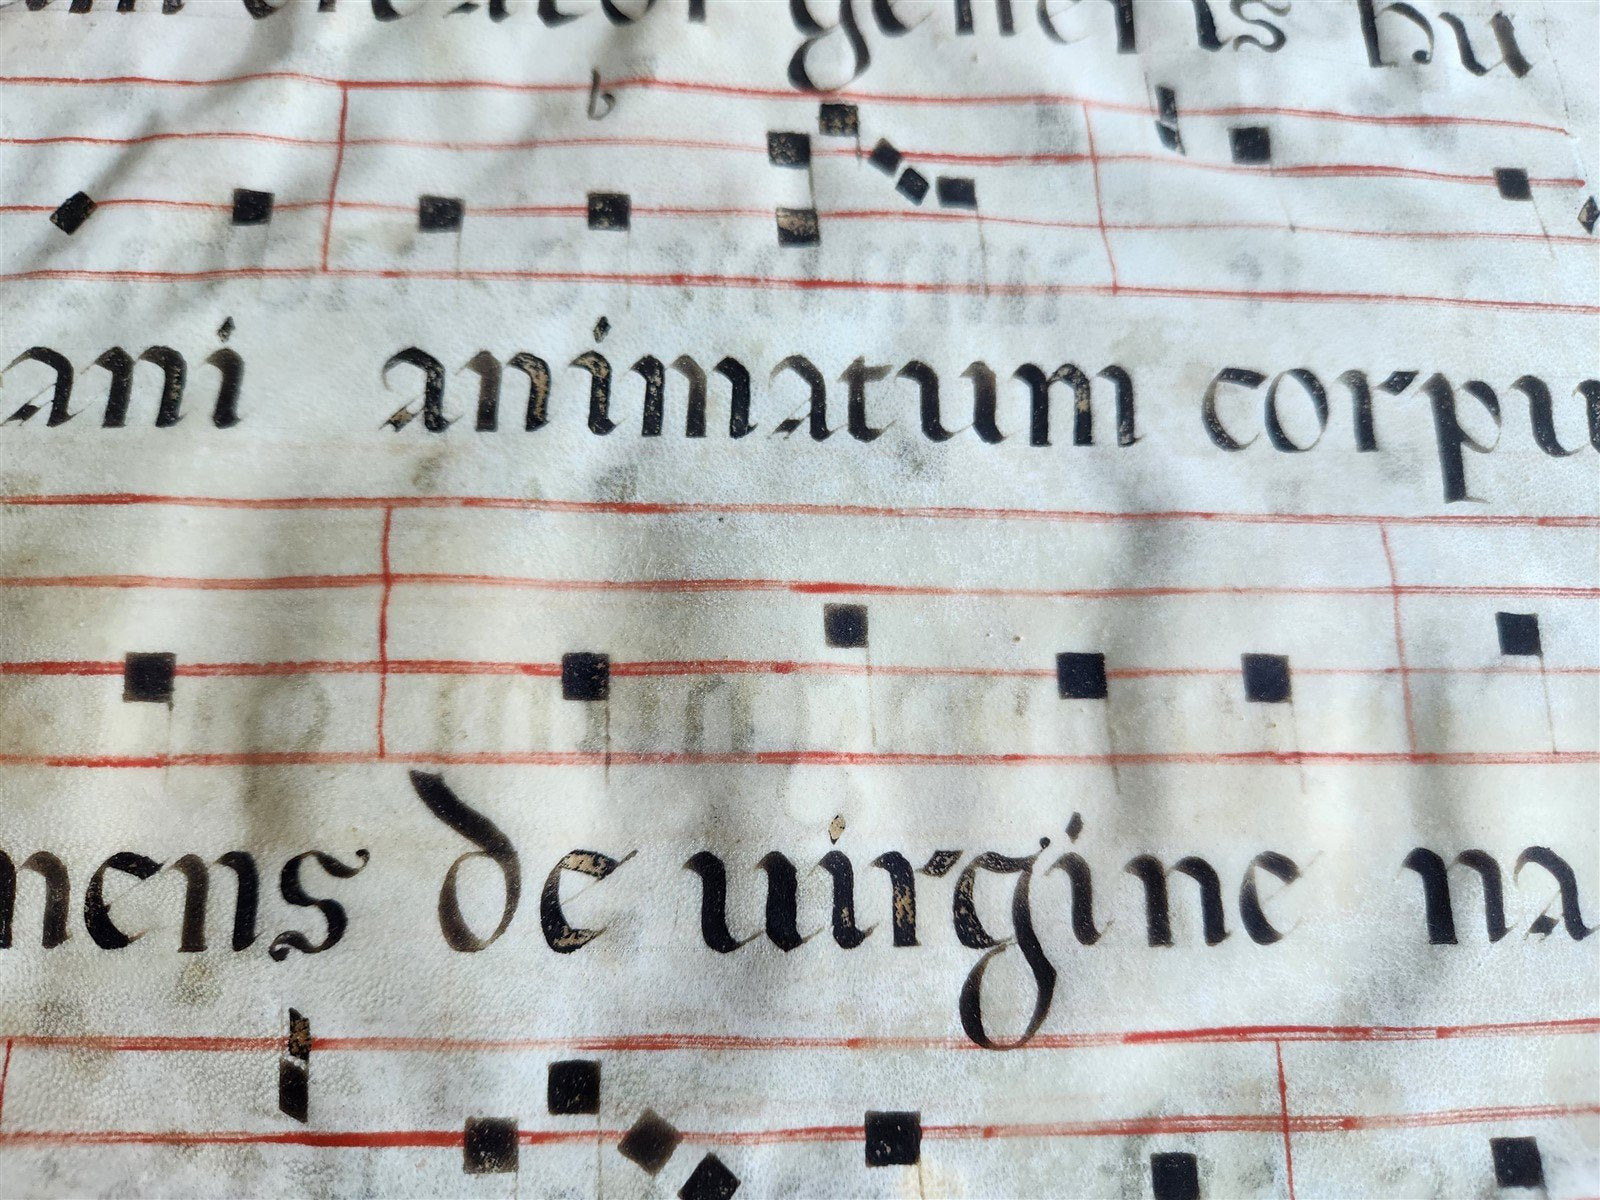 creator generis hu
ani animatum corpu
mens de uirgine na